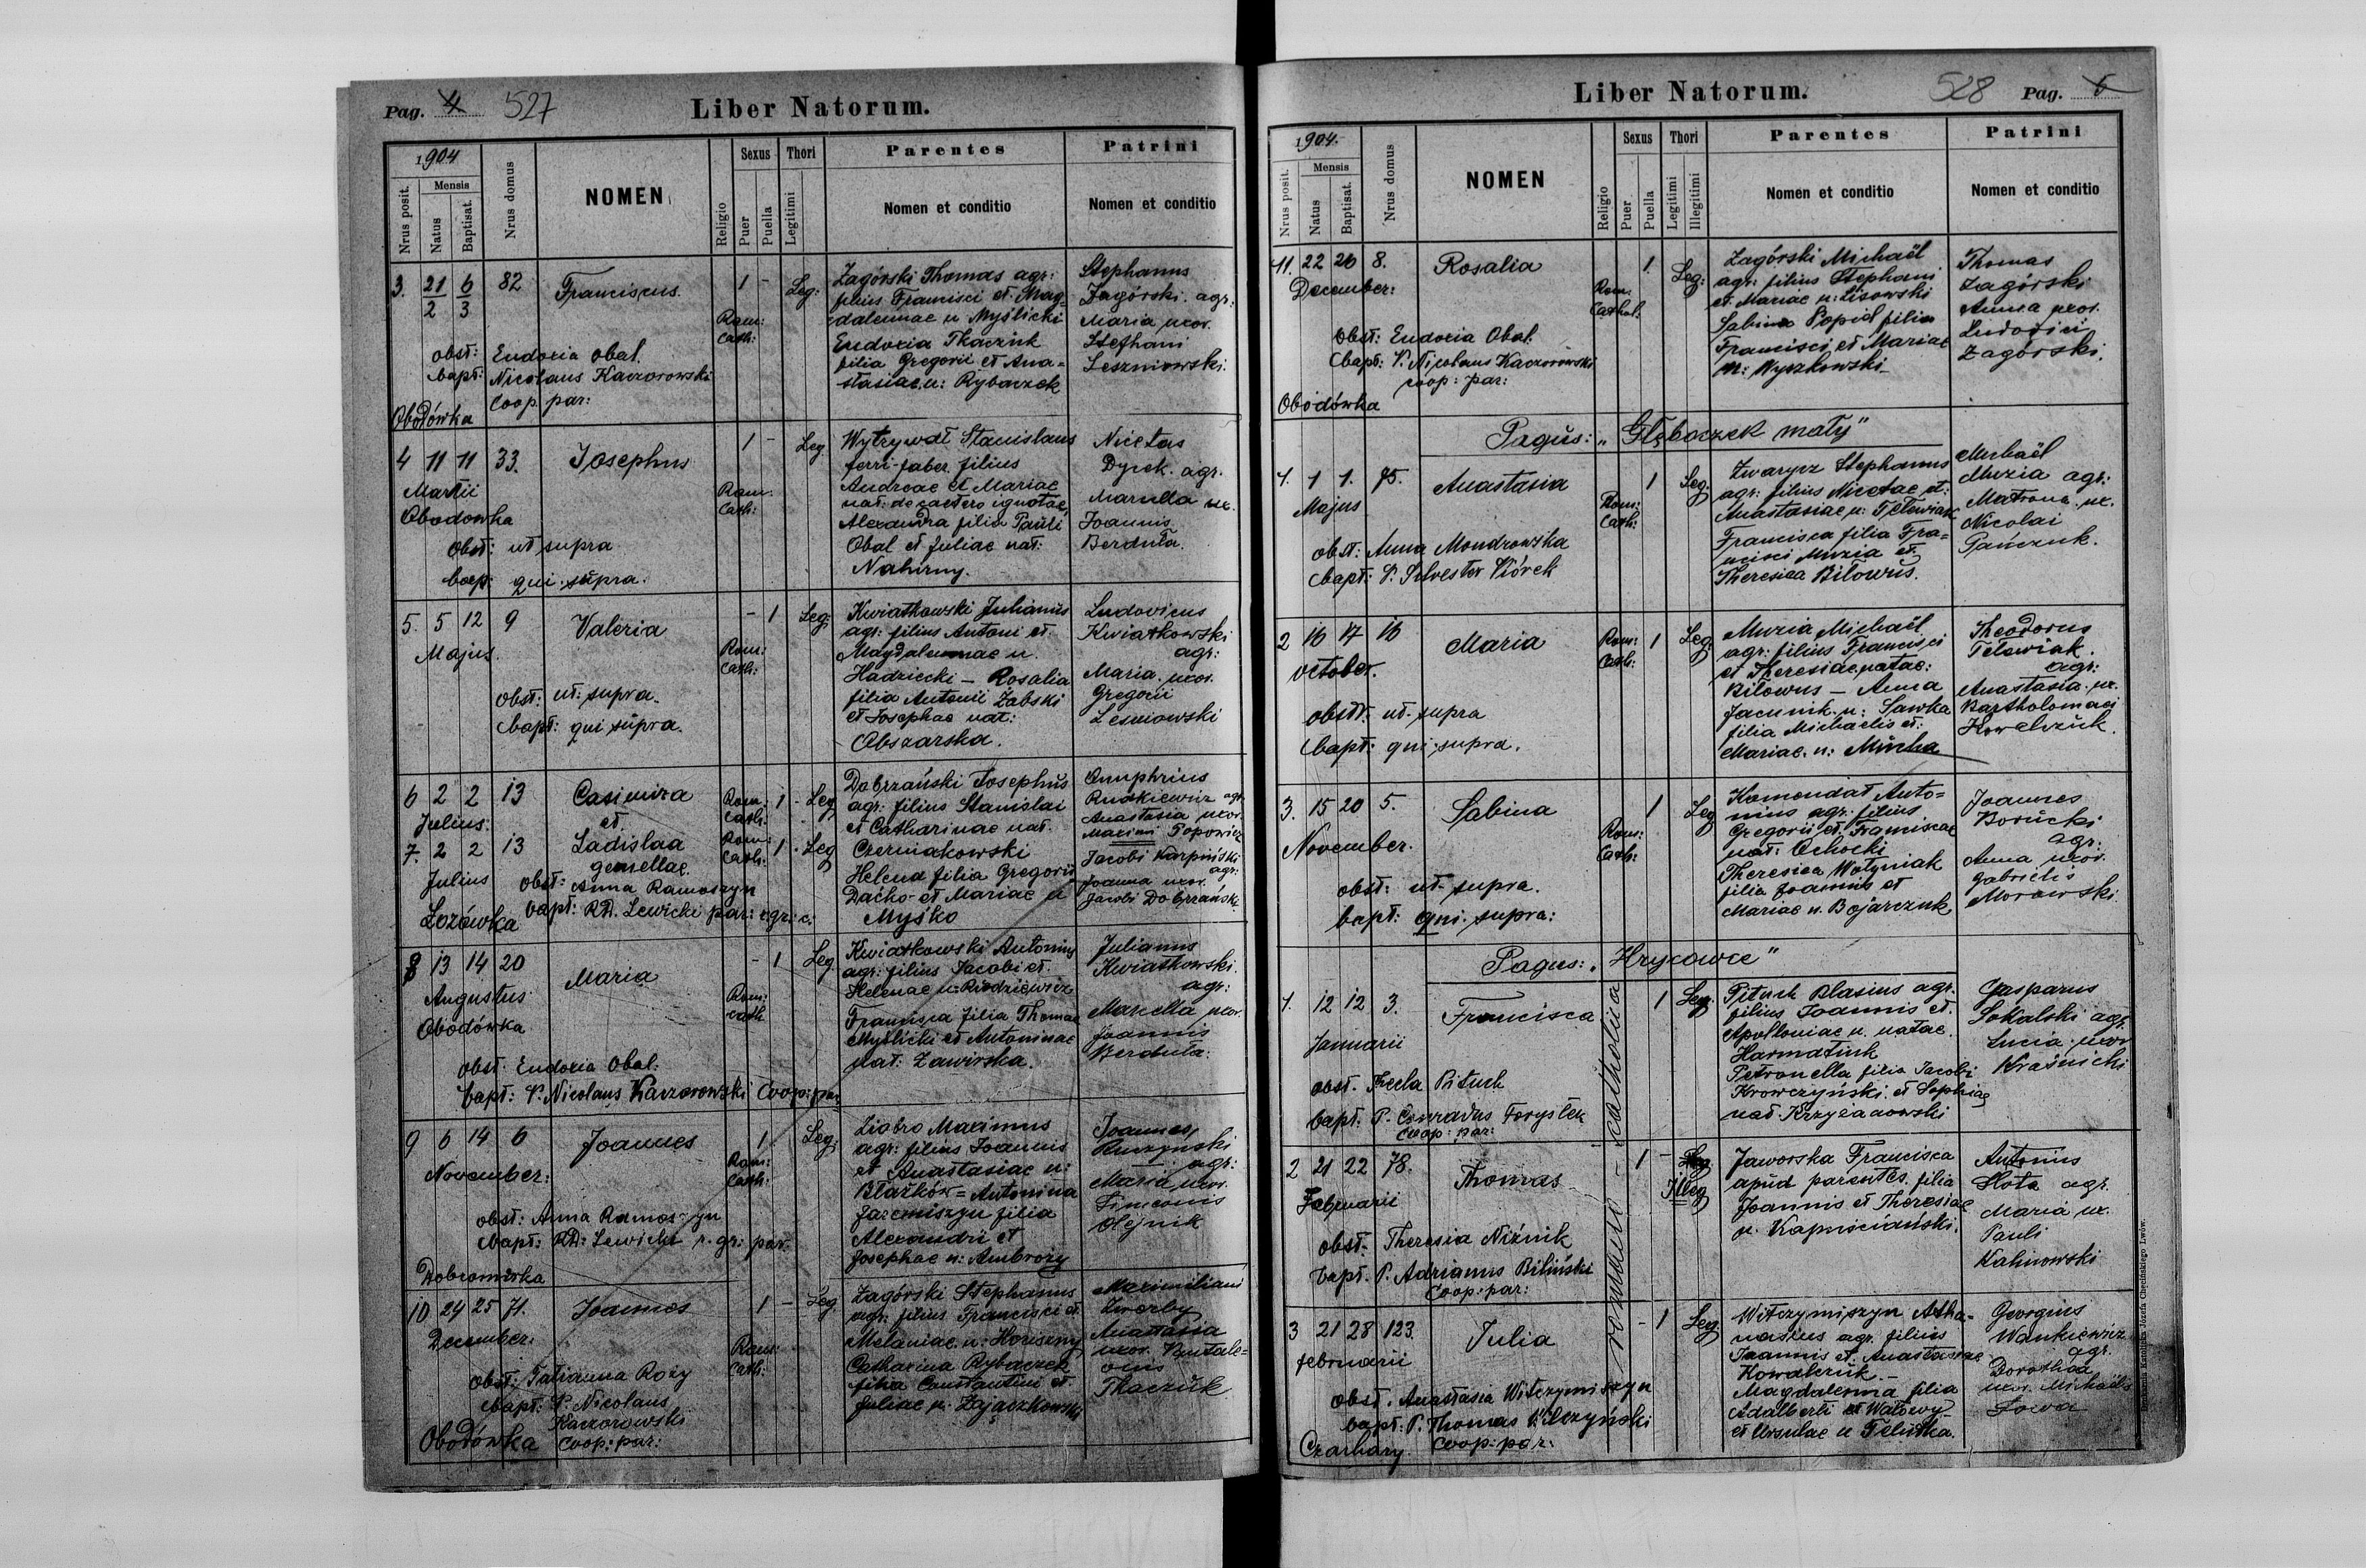 Pag. 4 527
Liber Natorum.
1904
Nrus posit.
Mensis
Natus
Baptisat.
Nrus domus
NOMEN
Religio
Sexus
Puer
Puella
Thori
Legitimi
Parentes
Nomen et conditio
Patrini
Nomen et conditio
3. 21/2 6/3 82 Franciscus
Rom: Cath: 1 - Leg:
obst: Eudoxia Obal.
bapt: Nicolaus Kaczorowski
Coop. par:
Obodówka
Zagórski Thomas agr:
filius Francisci et Mag=
dalennae n Myślicki
Eudoxia Tkaczuk
filia Gregorii et Ana=
stasiae n: Rybaczek
Stephanus
Zagórski agr:
Maria uxor.
Stefhani
Leszniowski.
4 11 11 33. Josephus
Martii
Obodowka
Rom: Cath: 1 - Leg
obst: ut supra
bapt: qui supra.
Wytrywał Stanislaus
ferri-faber filius
Andreae et Mariae
nat: de caetero ignotae,
Alexandra filia Pauli
Obal et Juliae nat:
Nahirny.
Nicetas
Dyrek. agr.
Marulla ux.
Joannis
Berduła.
5. 5 12 9 Valeria
Majus.
Rom: Cath: - 1 Leg:
obst: ut supra.
bapt: qui supra.
Kwiatkowski Julianus
agr: filius Antoni et
Magdalennae n.
Hadziecki - Rosalia
filia Antonii Żabski
et Josephae nat:
Obszarska.
Ludovicus
Kwiatkowski
agr:
Maria uxor.
Gregorii
Lesniowski
6 2 2 13 Casimira
Julius.
et
7. 2 2 13 Ladislaa
Julius
gemellae.
Rom: Cath: 1 - Leg
Rom: Cath: 1 - Leg
obst: Anna Ramaszyn
bapt: RD. Lewicki par: r. gr: c:
Łozówka
Dobrzański Josephus
agr: filius Stanislai
et Catharinae nat.
Czerniakowski
Helena filia Gregorii
Daćko et Mariae n
Myśko
Onuphrius
Rudkiewicz agr.
Anastasia uxor.
Maximi Popowicz
Jacobi Karpiński
agr:
Joanna uxor.
Jacobi Dobrzański
8 13 14 20 Maria
Augustus
Obodówka
Rom: cath - 1 Leg
obst: Eudoxia Obal:
bapt: P. Nicolaus Kaczorowski Coop: par:
Kwiatkowski Antonius
agr: filius Jacobi et
Helenae n: Rudziewicz
Francisca filia Thomae
Myślicki et Antoninae
nat: Zawirska.
Julianus
Kwiatkowski.
agr:
Marcella uxor.
Joannis
Berduła.
9 6 14 6 Joannes
November:
Rom: Cath: 1 Leg:
obst: Anna Ramaszyn
bapt: RD: Lewicki r. gr: par.
Dobromirka
Ziobro Maximus
agr: filius Joannis
et Anastasiae n:
Blażków = Antonina
Jaremiszyn filia
Alexandri et
Josephae n: Ambroży
Joannes
Ruszynski
agr:
Maria uxor.
Simeonis
Olejnik
10 24 25 71. Joannes
December.
Rom: Cath: 1 - Leg.
obst: Tatianna Roży
bapt: P. Nicolaus
Kaczorowski
Obodówka Coop: par:
Zagórski Stephanus
agr: filius Francisci et
Melaniae n: Horiszny
Catharina Rybaczek
filia Constantini et
Juliae n: Zajączkowski
Maximiliani
Anastasia
uxor.
Tkaczuk
Liber Natorum.
528 Pag. 5
1904.
Nrus posit.
Mensis
Natus
Baptisat.
Nrus domus
NOMEN
Religio
Sexus
Puer
Puella
Thori
Legitimi
Illegitimi
Parentes
Nomen et conditio
Patrini
Nomen et conditio
11. 22 26 8. Rosalia
December:
Rom: Cathol. 1. Leg:
Obst: Eudoxia Obal.
bapt: P. Nicolaus Kaczorowski
coop: par:
Obodówka
Zagórski Michaël
agr: filius Stephani
et Mariae n: Lisowski
Sabina Popiel filia
Francisci et Mariae
n: Wyszkowski
Thomas
Zagórski
Anna uxor.
Ludovici
Zagórski.
Pagus: „Głęboczek mały”
1. 1 1. 75. Anastasia
Majus
Rom: Cath: 1 Leg.
obst: Anna Mondrowska
bapt: P. Silvester Piórek
Zwarycz Stephanus
agr: filius Nicetae et
Anastasiae n: Telewiak
Francisca filia Fra=
ncisci Muzia et
Theresiae Biłowus.
Michaël
Muzia agr:
Matrona ux.
Nicolai
Pańczuk.
2 16 17 16 Maria
October.
Rom: Cath: 1 Leg
obstr: ut supra
bapt: qui supra.
Muzia Michaël
agr: filius Francisci
et Theresiae natae:
Biłowus - Anna
Jacunik n: Sawka
filia Michaelis et
Mariae n: Mucha
Theodorus
Telewiak.
agr:
Anastasia ux.
Bartholomaei
Kowalczuk.
3. 15 20 5. Sabina
November.
Rom: Cath: 1 Leg
obst: ut supra.
bapt: qui supra:
Komendat Anto=
nius agr: filius
Gregorii et Franciscae
nat: Ochocki
Theresiea Wołyniak
filia Joannis et
Mariae n. Bojarczuk
Joannes
Borucki
agr:
Anna uxor.
Gabrielis
Morawski.
Pagus: „Hrycowce”
romana - catholica
1. 12 12 3. Francisca
Januarii
1 Leg.
obst. Thecla Pituch
bapt. P. Conradus Forystek
Coop: par:
Pituch Blasius agr.
filius Joannis et
Apolloniae n. natae.
Harmatiuk
Petronella filia Jacobi
Krowczyński et Sophiae
nat. Krzyżanowski
Gasparus
Sokalski agr.
Lucia uxor
Kraśnicki
2 21 22 78. Thomas
Februarii
1 - Leg.
Illeg
obst: Theresia Niżnik
bapt. P. Adrianus Biliński
Coop: par:
Jaworska Francisca
apud parentes. filia
Joannis et Theresiae
n. Kapuściański.
Antonius
Słota agr.
Maria ux.
Pauli
Kalinowski
3 21 28 123. Julia
februarii
- 1 Leg
obst. Anastasia Witczymiszyn
bapt: P. Thomas Wilczyński
Czarhary. Coop: par:
Witczymiszyn Atha=
nasius agr. filius
Joannis et Anastasiae
Kowalczuk. -
Magdalenna filia
Adalberti et Watowy
et Ursulae n Teluthka.
Georgius
Wankiewicz
agr.
Dorothea
uxor. Michaelis
Sowa
Drukarnia Katolicka Józefa Chęcińskiego Lwów.